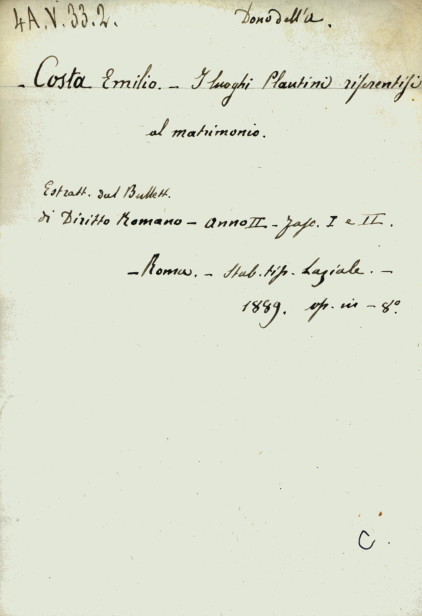 4A.V.33.2. Dono dell'A.
- Costa Emilio. - I luoghi Plautini riferentisi
al matrimonio.
Estratt. dal Bullett.
di Diritto Romano - Anno II - Fasc. I e II.
- Roma. - Stab. tip. Laziale. -
1889. op. in - 8º.
C